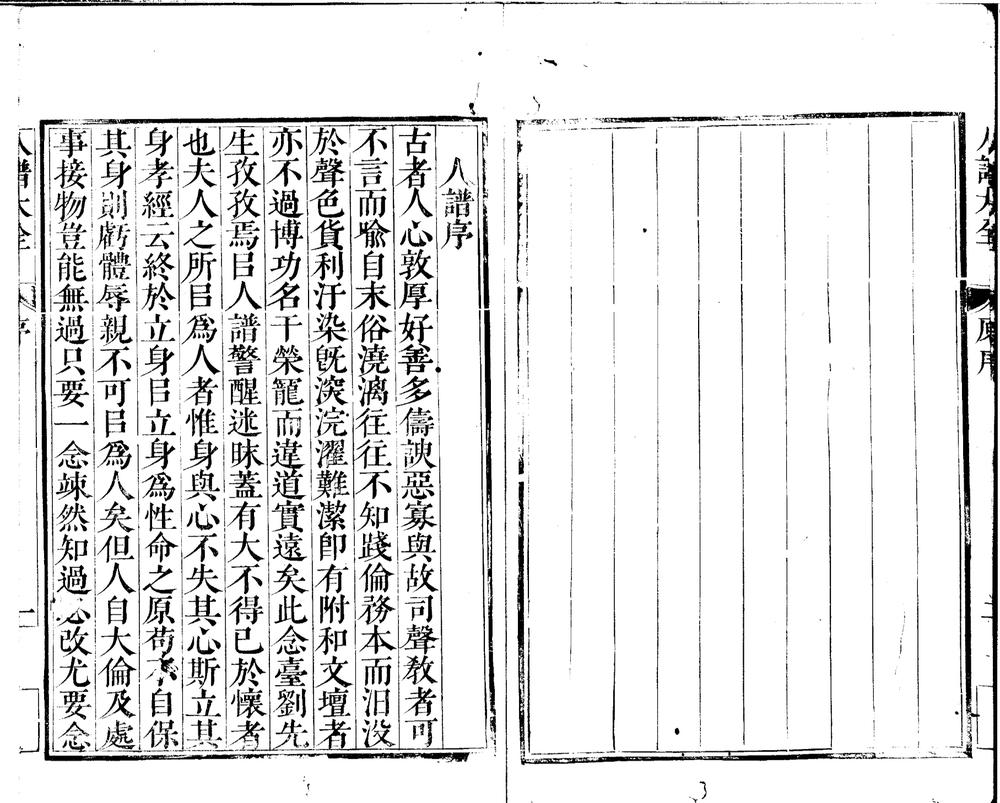 人譜大全
原序
人譜序
古者人心敦厚好善多儔諛惡寡與故司聲敎者可
不言而喩自末俗澆漓往往不知踐倫務本而汨没
於聲色貨利汙染旣深浣濯難潔卽有附和文壇者
亦不過博功名干榮寵而違道實遠矣此念臺劉先
生孜孜焉㠯人譜警醒迷昧蓋有大不得已於懷者
也夫人之所㠯爲人者惟身與心不失其心斯立其
身孝經云終於立身㠯立身爲性命之原苟不自保
其身則虧體辱親不可㠯爲人矣但人自大倫及處
事接物豈能無過只要一念竦然知過必改尤要念
人譜大全
序
一